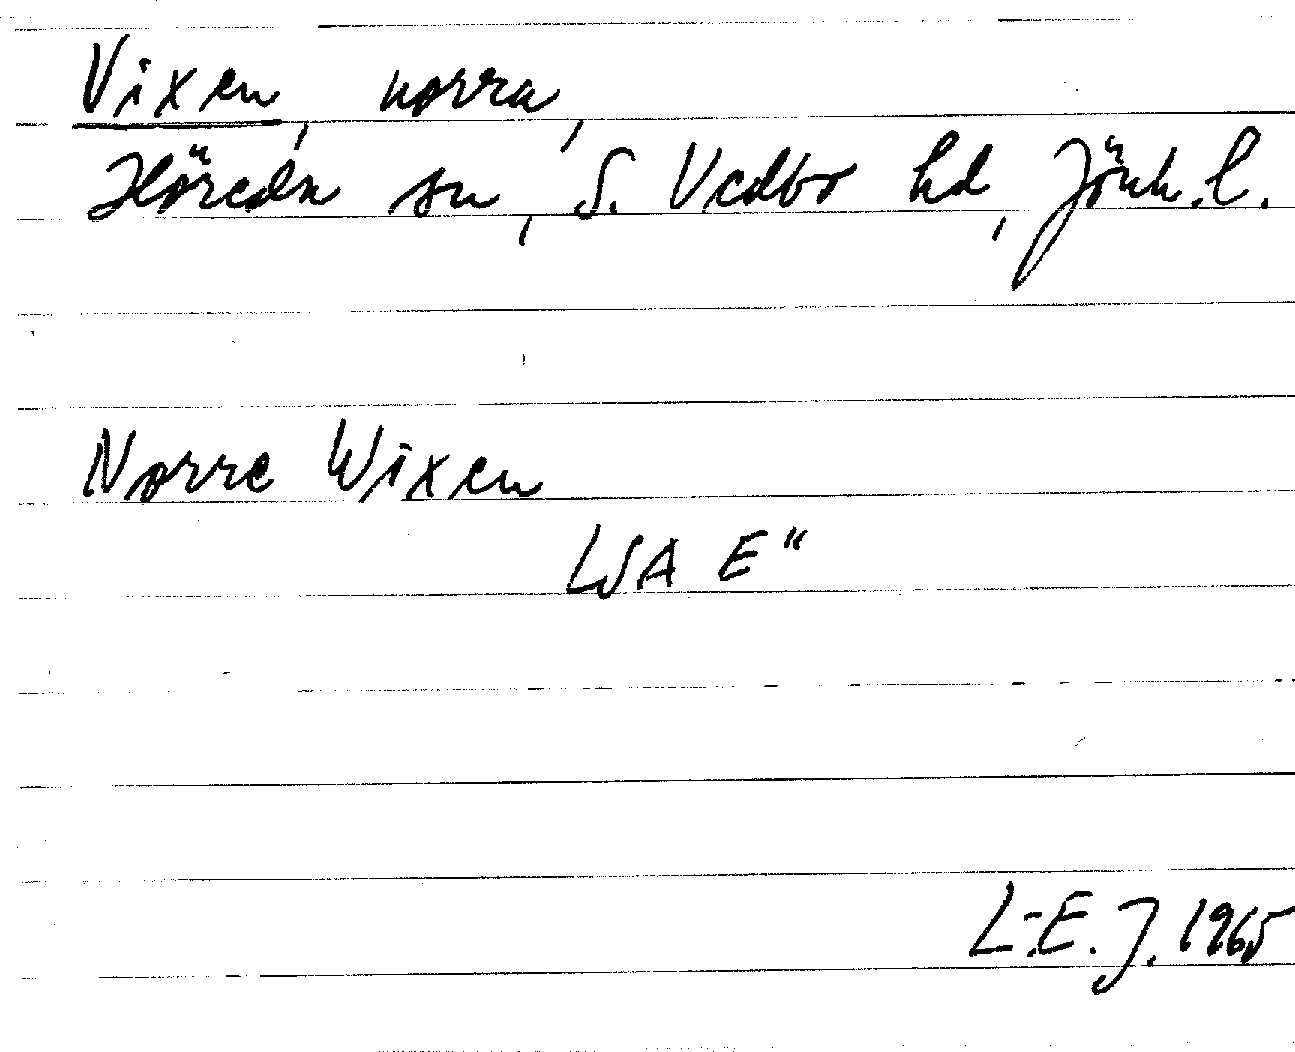 Vixen, norra,
Höreda sn, S. Vedbo hd, Jönk. l.
Norre Wixen
LSA E"
L-E. J. 1965